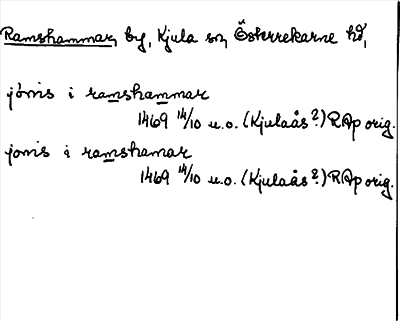 Ramshammar, by, Kjula sn, Österrekarne hd,
jönis i ramshammar
1469 14/10 u.o. (Kjulaås?) RAp orig.
jonis i ramshamar
1469 14/10 u.o. (Kjulaås?) RAp orig.